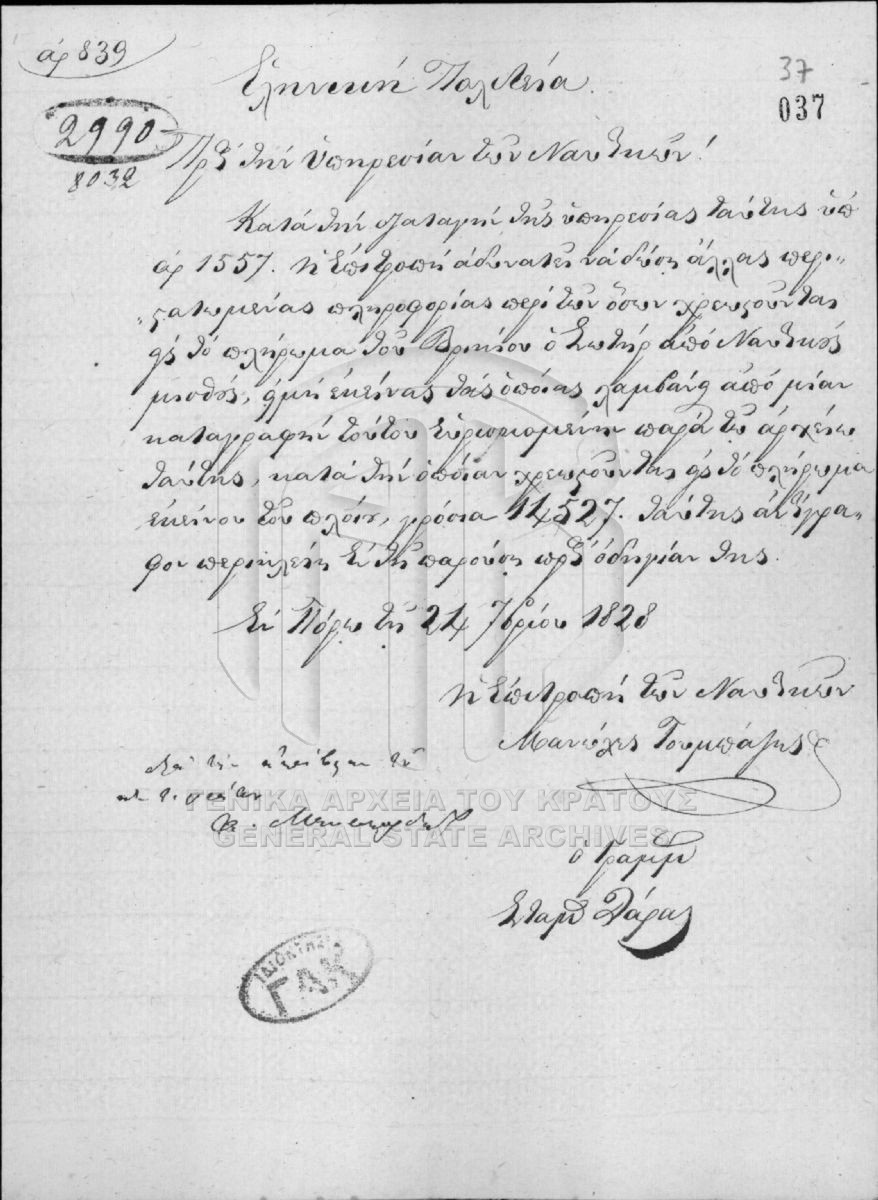 ἀρ 839
37
037
Ἑληνική Πολιτεία.
2990
8032
Πρὸς τὴν ὑπηρεσίαν τῶν Ναυτικῶν!
Κατὰ τὴν διαταγὴν τῆς ὑπηρεσίας ταύτης ὑπ
ἀρ 1557. ἡ Ἐπιτροπὴ ἀδυνατεῖ νὰ δώσῃ ἄλλας περι„
„στατωμένας πληροφορίας περὶ τῶν ὅσων χρεωστοῦνται
εἰς τὸ πλήρωμα τοῦ Βρικίου ὁ Σωτὴρ ἀπὸ Ναυτικοὺς
μισθούς, εἰμὴ ἐκείνας τὰς ὁποίας λαμβάνει ἀπὸ μίαν
καταγραφὴν τούτου εὑρισκομένην παρὰ τῷ ἀρχείῳ
ταύτης, κατὰ τὴν ὁποίαν χρεωστοῦνται εἰς τὸ πλήρωμα
ἐκείνου τοῦ πλοίου, γρόσια 14527. ταύτης ἀντίγρα„
φον περικλείει ἐν τῇ παρούσῃ πρὸς ὁδηγίαν της.
Ἐν Πόρῳ τῇ 24 7βρίου 1828
Ἡ Ἐπιτροπὴ τῶν Ναυτικῶν
Μανώλης Τουμπάζης
ὁ Γραμμ
Σταμ
ΓΕΝΙΚΑ ΑΡΧΕΙΑ ΤΟΥ ΚΡΑΤΟΥΣ
GENERAL STATE ARCHIVES
ΓΑΚ